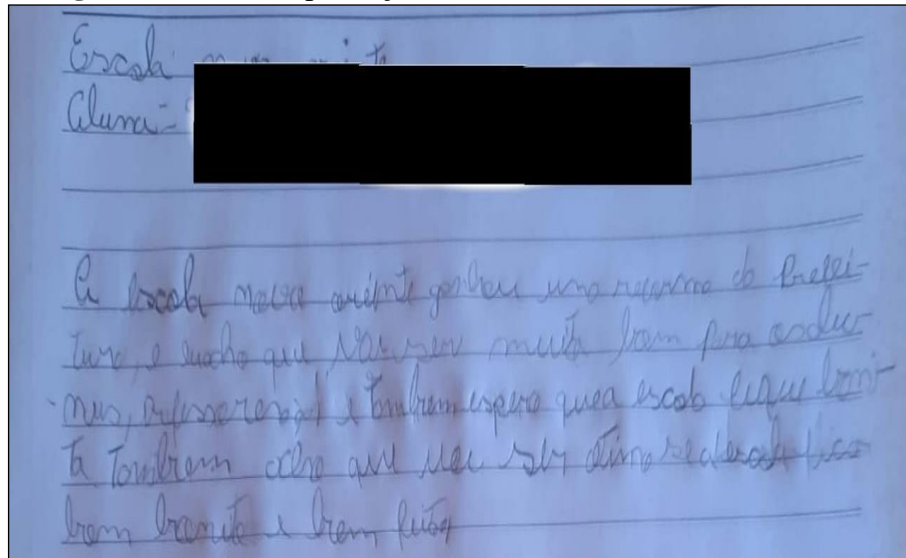 Escola nova oriente
Aluna-
A escola nova oriente ganhou uma reforma da Prefei-
tura, e eu acho que vai ser muito bom pra os alu-
nus, professores, e tambem espero que a escola fique boni-
ta Tambem acho que vai ser otimo se a escola ficar
bem bonita e bem feita